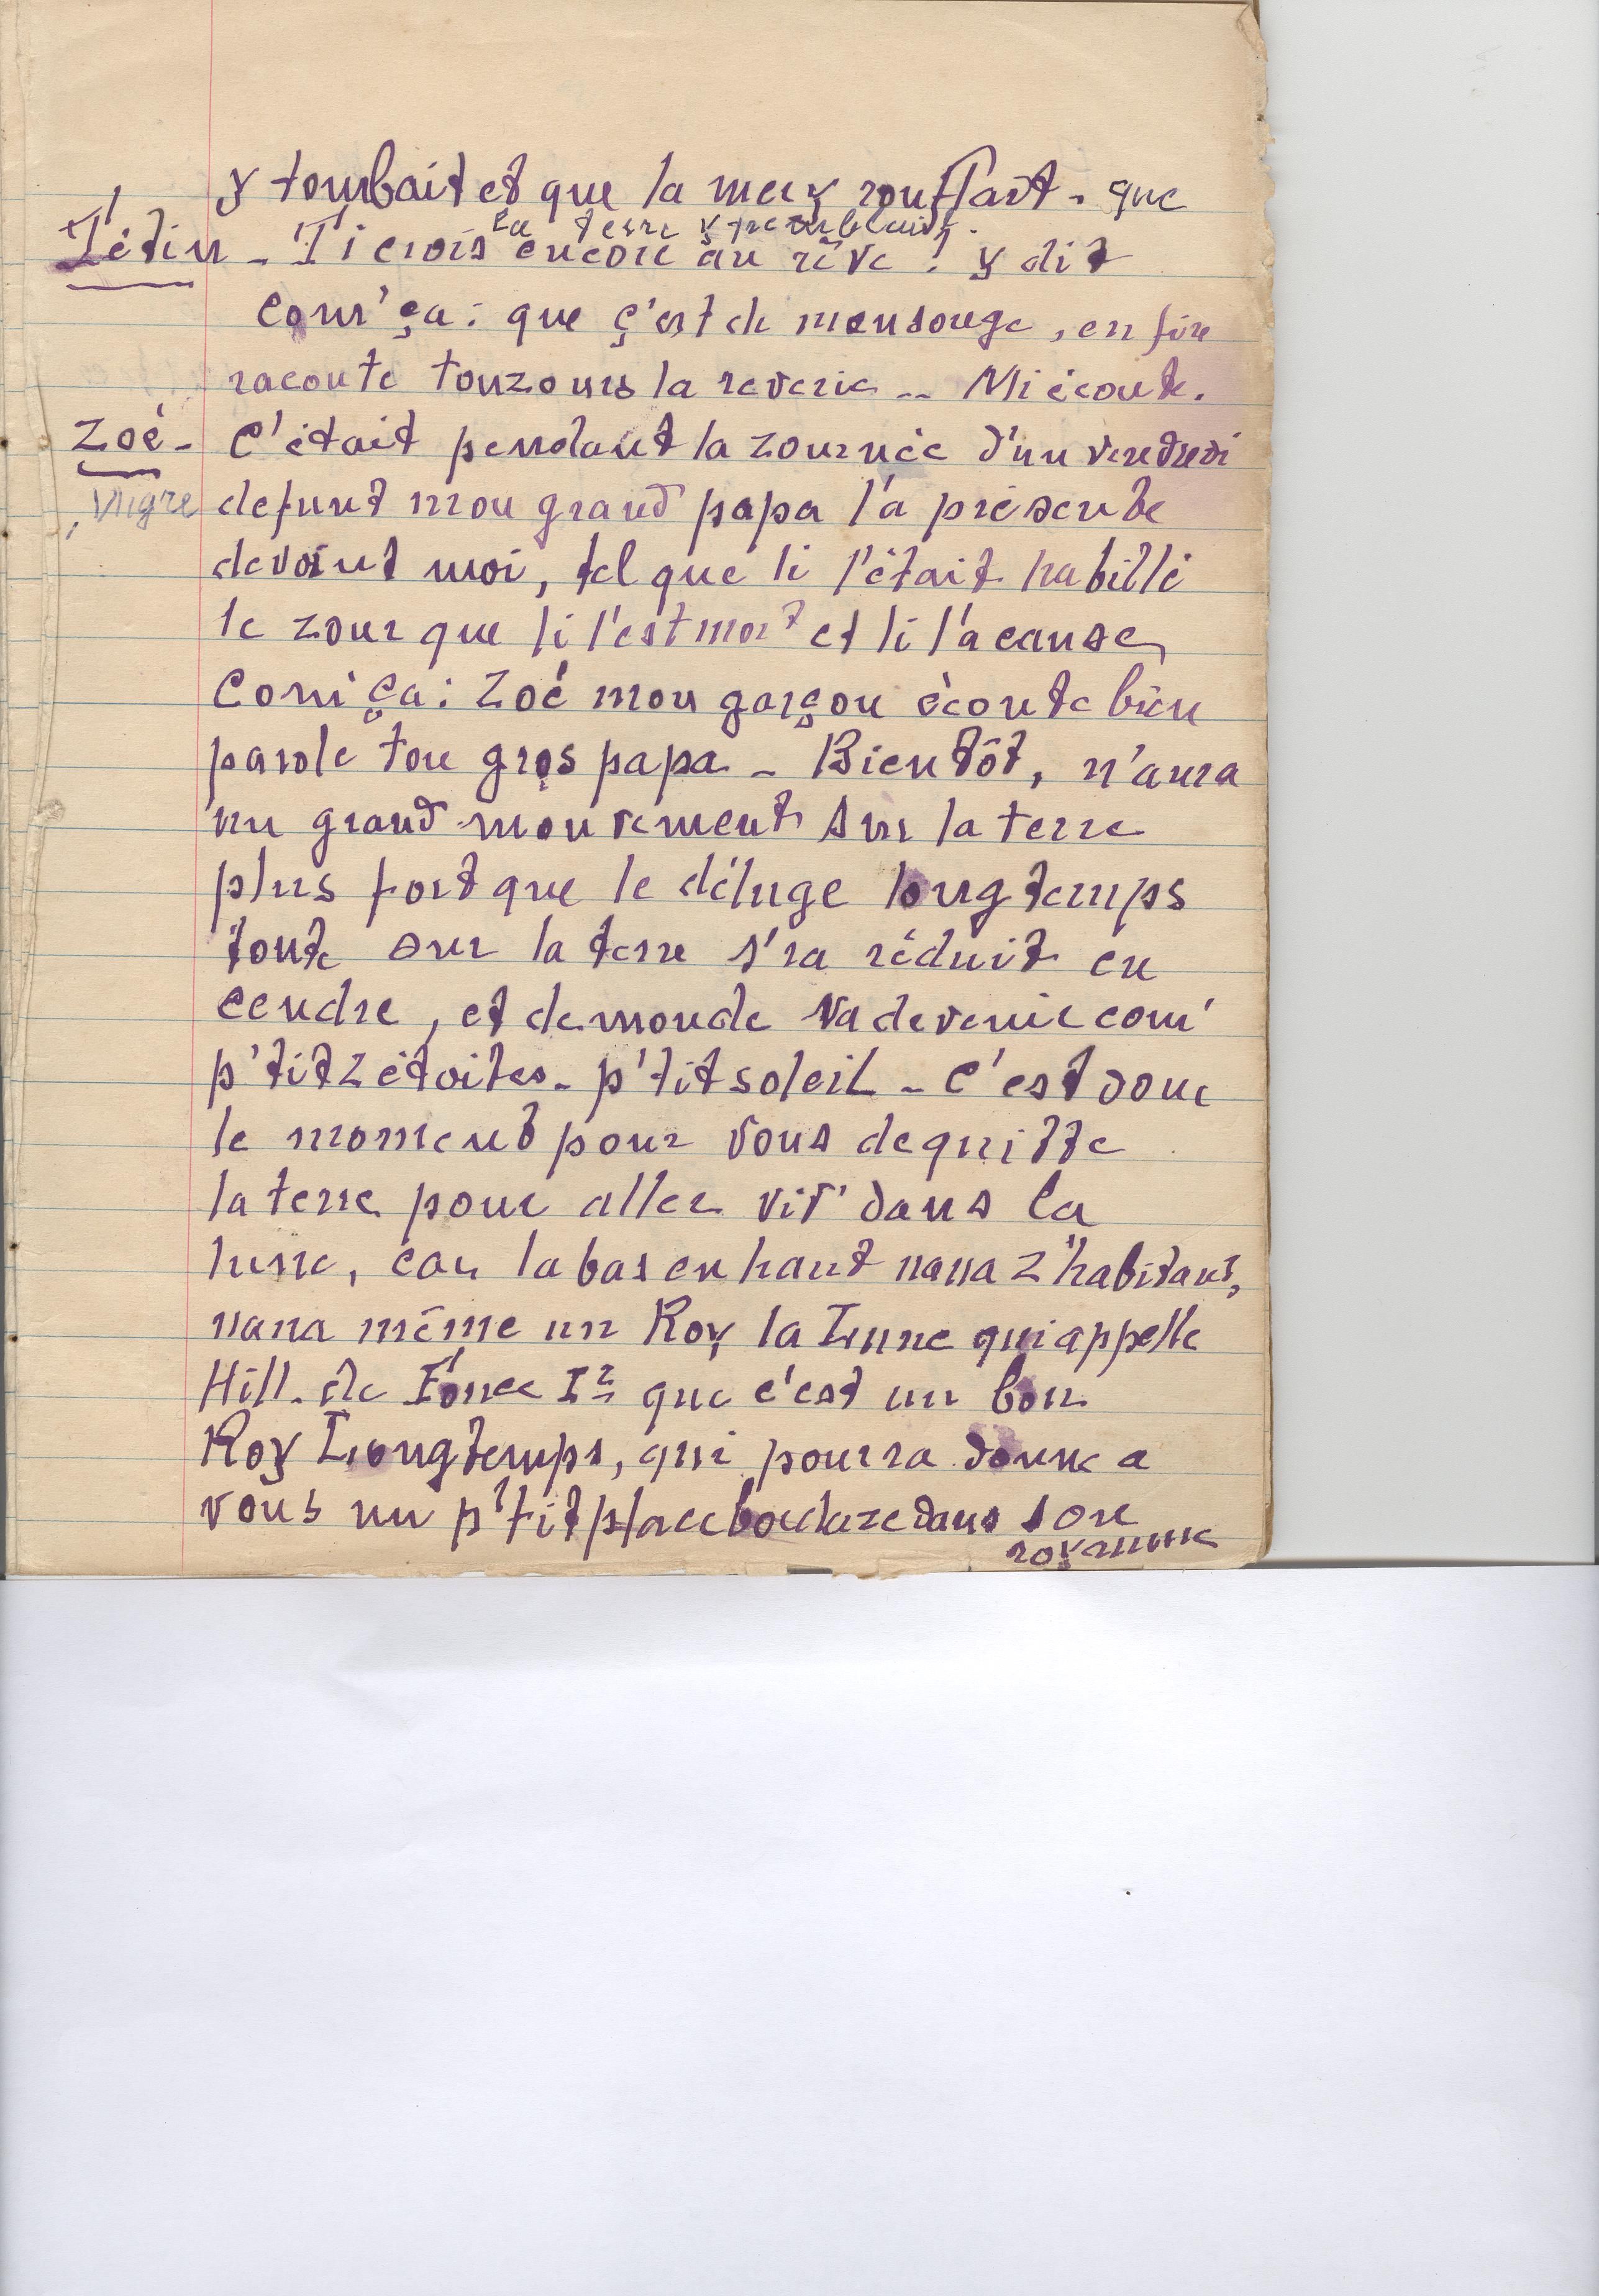 y tombait et que la mer y ronflait - que
la terre y tremblait.
Tétin - Ti crois encore au rêve ! y dit
com'ça : que ç'est de mensonge, en fin
raconte touzours la reverie -- Mi écoute.
Zoé - C'était pendant la zournée d'un vendredi
defunt mon grand papa l'a présente
devant moi, tel que li l'était habillé
le zour que li l'est mort et li l'a cause
Com'ça : Zoé mon garçon écoute bien
parole ton gros papa - Bientôt, n'aura
un grand mouvement sur la terre
plus fort que le déluge longtemps
toute sur la terre s'ra réduit en
cendre, et de monde va devenir com'
p'tit zétoiles - p'tit soleil - C'est donc
le moment pour vous de quitte
la terre pour aller viv' dans la
lune, car la bas en haut nana z'habitant,
nana même un Roy la Lune qui appelle
Hill. de Fonce Ier que c'est un bon
Roy Longtemps, qui pourra donne a
vous un p'tit place dans son
royaume